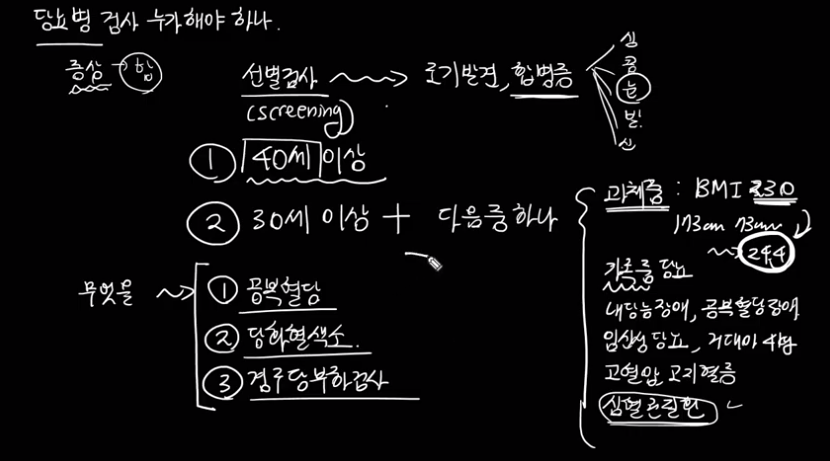 당뇨병 검사 누가해야 하나.
증상 → 함
선별검사 → 조기발견, 합병증
(screening)
심
콩
눈
발
신
① 40세 이상
② 30세 이상 + 다음중 하나
과체중 : BMI 230
173cm 73
244
가족중 당뇨
내당능장애, 공복혈당장애
임신성당뇨, 거대아
고혈압, 고지혈증
심혈관질환
무엇을 →
① 공복혈당
② 당화혈색소.
③ 경구당부하검사